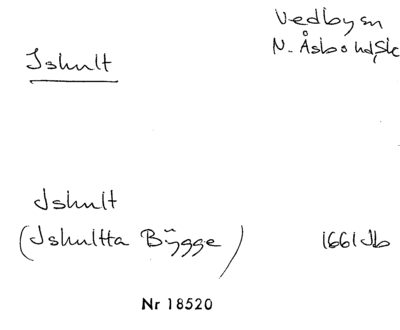 Vedby sn
N. Åsbo hd, Sk
Ishult
Ishult
(Ishultta Bÿgge) 1661 Jb
Nr 18520